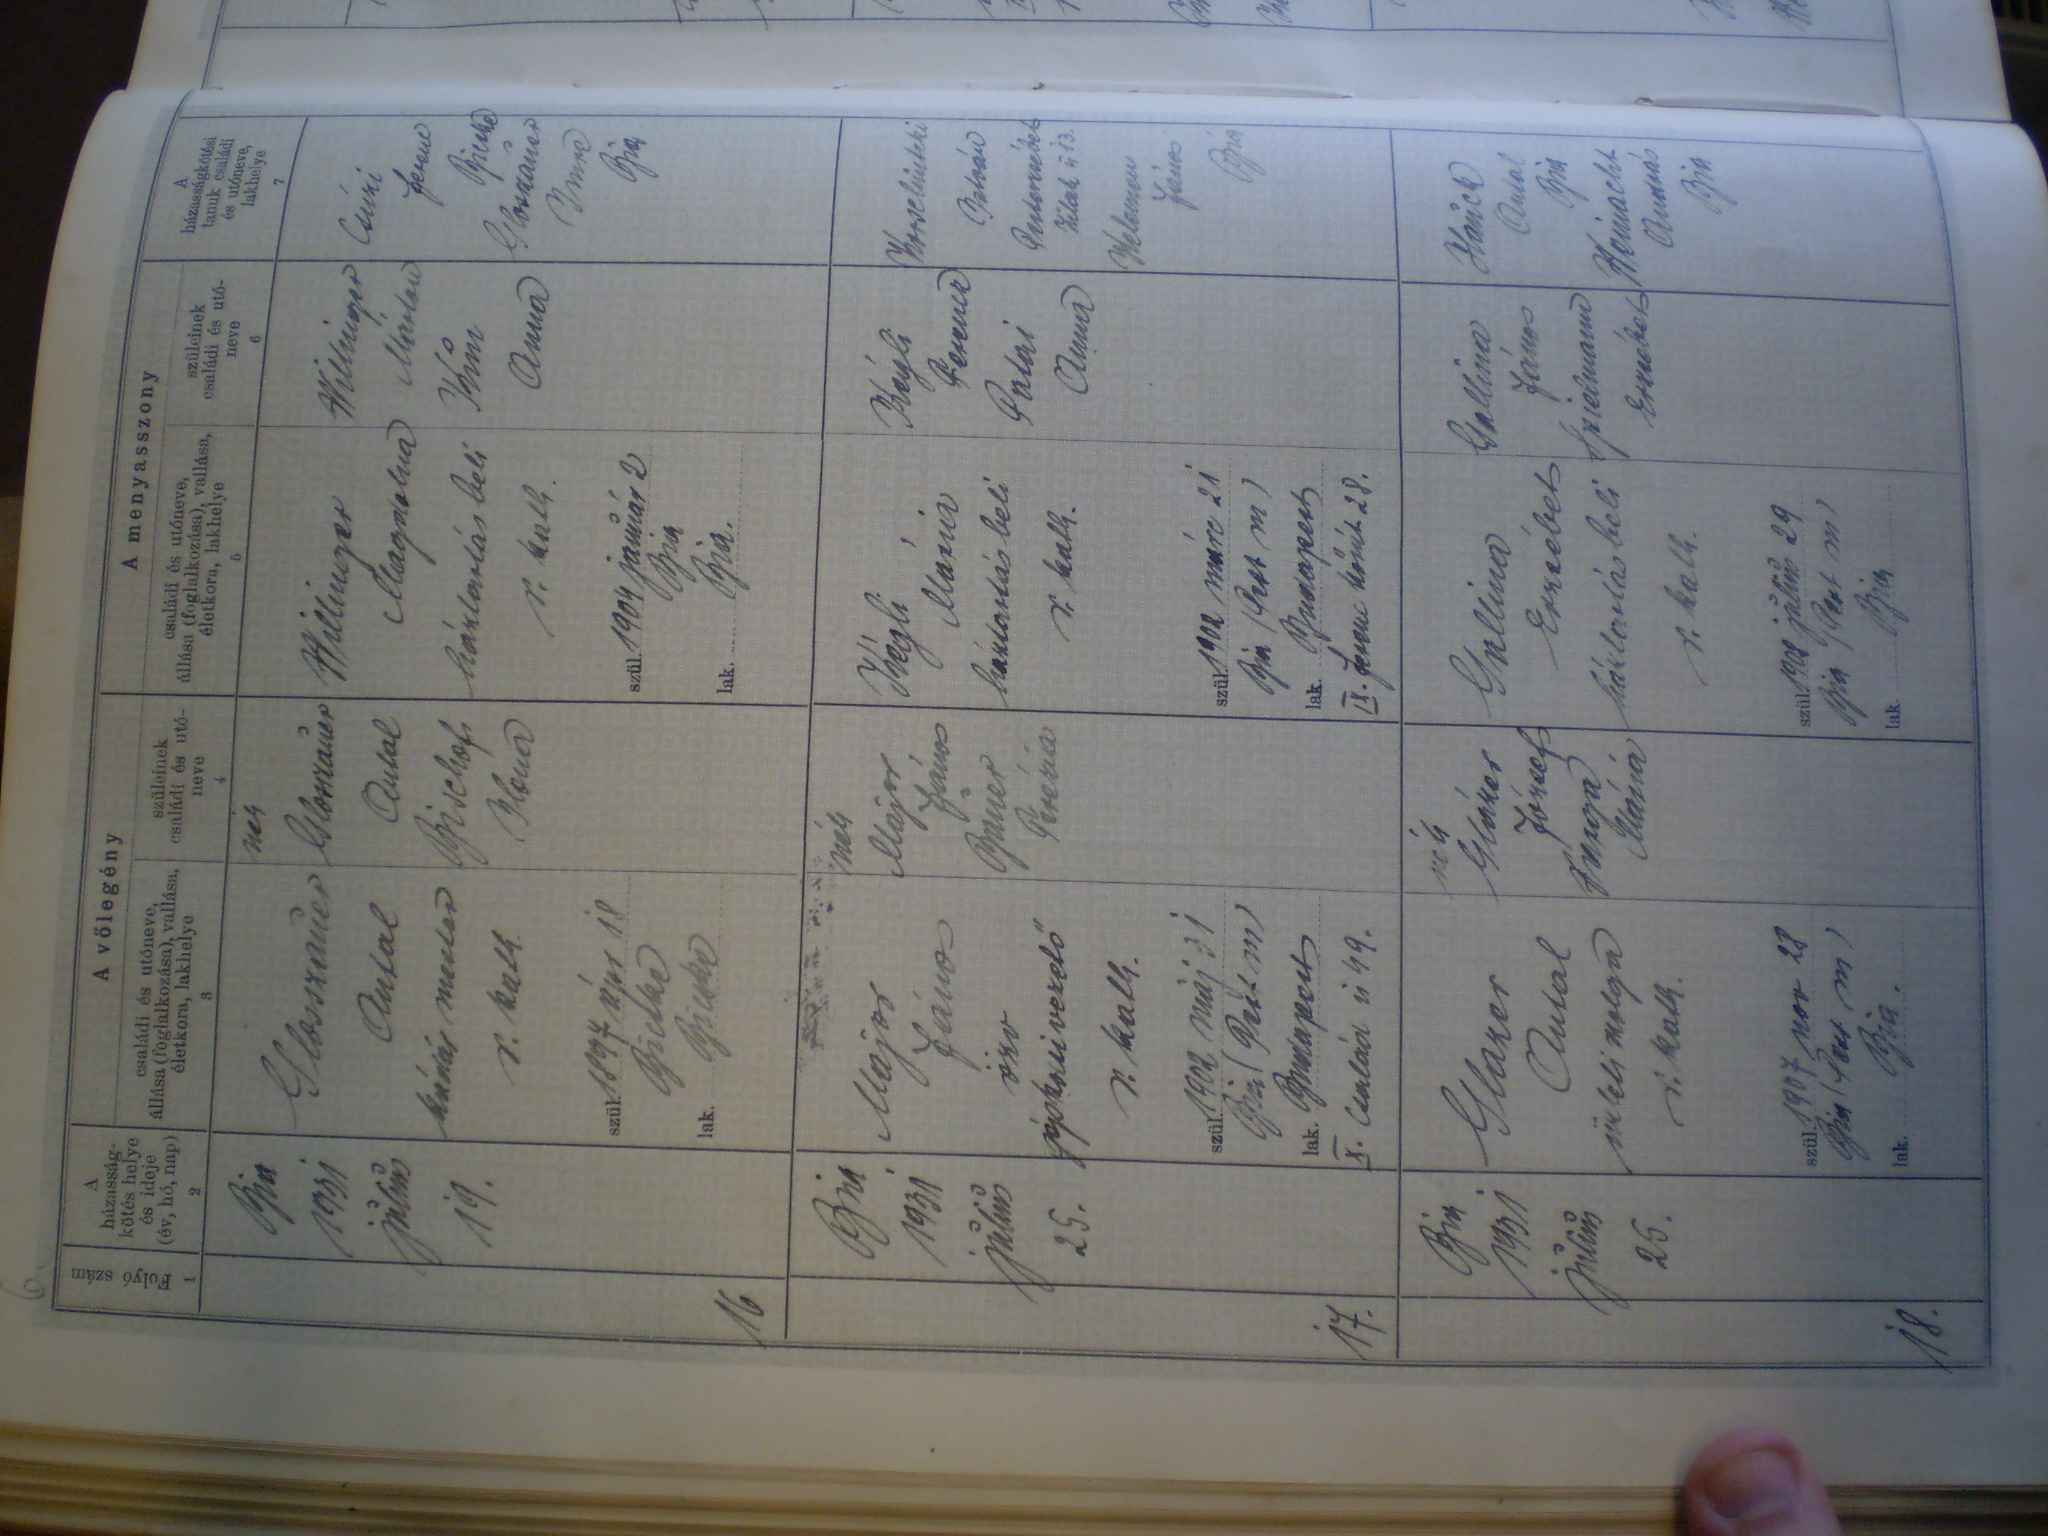 A vőlegény
A menyasszony
Folyó-
szám
1
A
házasság-
kötés helye
és ideje
(év, hó, nap)
2
családi és utóneve,
állása (foglalkozása), vallása,
életkora, lakhelye
3
szüleinek
családi és utó-
neve
4
családi és utóneve,
állása (foglalkozása), vallása,
életkora, lakhelye
5
szüleinek
családi és utó-
neve
6
A
házasságkötési
tanuk családi
és utóneve,
lakhelye
7
16
Bia
1931
július
19.
Gloszauer
Antal
kádár mester
r. kath.
szül. 1897 18
Bicske
lak. Bicske
néh
Gloszauer
Antal
Bischof
Ilona
Willinger
Magdolna
háztartásbeli
r. kath.
szül. 1904 január 2
Bia
lak. Bia.
Willinger
Márton
Anna
Csúzi
Ferenc
Bicske
Gloszauer
Imre
Bia
17.
Bia
1931
július
25.
Major
János
gépkocsivezető
r. kath.
szül. 1902 máj 31
Bia (Pest m)
lak. Budapest
X. Család u 49.
néh
Major
János
Bauer
Terézia
Kégli
Mária
háztartásbeli
r. kath.
szül. 1902 márc 21
Bia (Pest m)
lak. Budapest
IX. Ferenc körút 28.
Kégli
Ferenc
Palai
Anna
István
Kelemen
János
Bia
18.
Bia
1931
július
25.
Glazer
Antal
r. kath.
szül. 1907 nov 28
Bia (Pest m)
lak. Bia.
néh
Glázer
József
Varga
Mária
Gallina
Erzsébet
háztartásbeli
r. kath.
szül. 1908 július 29
Bia (Pest m)
lak. Bia
Gallina
János
Spielmann
Erzsébet
Hanck
Antal
Bia
András
Bia